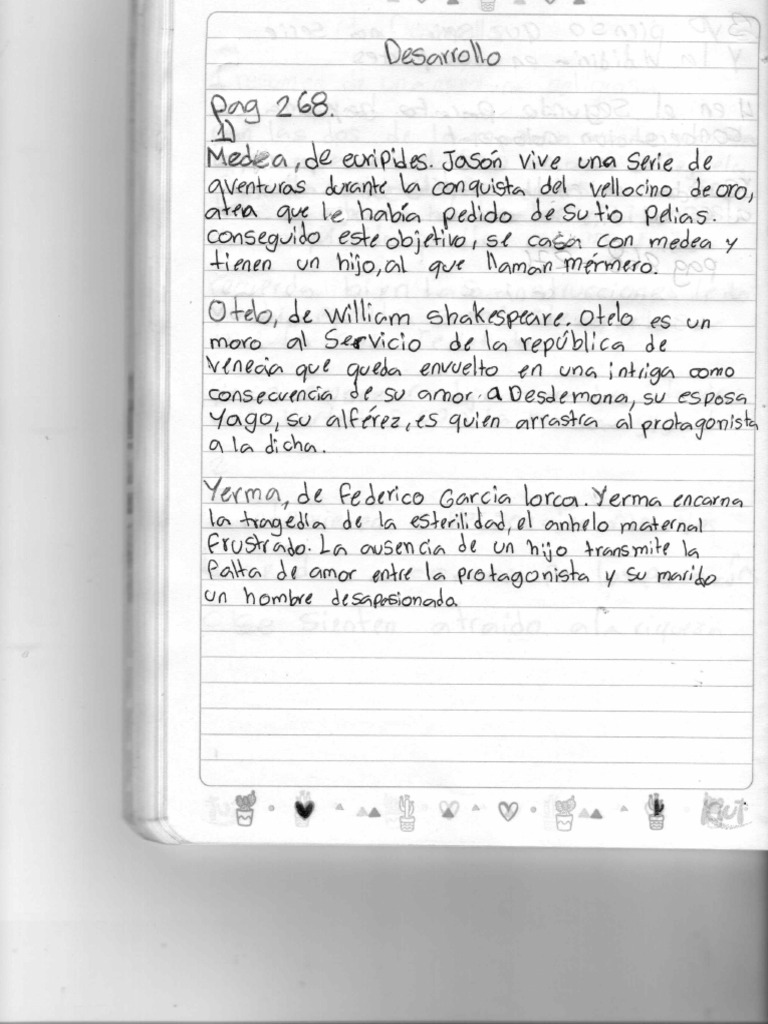 Desarrollo
pag 268.
1)
Medea, de euripides. Jasón vive una serie de
aventuras durante la conquista del vellocino de oro,
atea que le había pedido de su tio pelias.
conseguido este objetivo, se casa con medea y
tienen un hijo, al que llaman mérmero.
Otelo, de william shakespeare. Otelo es un
moro al Servicio de la república de
venecia que queda envuelto en una intriga como
consecuencia de su amor a Desdemona, su esposa
Yago, su alférez, es quien arrastra al protagonista
a la dicha.
Yerma, de Federico Garcia lorca. Yerma encarna
la tragedia de la esterilidad, el anhelo maternal
Frustrado. La ausencia de un hijo transmite la
falta de amor entre la protagonista y su marido
un hombre desapasionado.